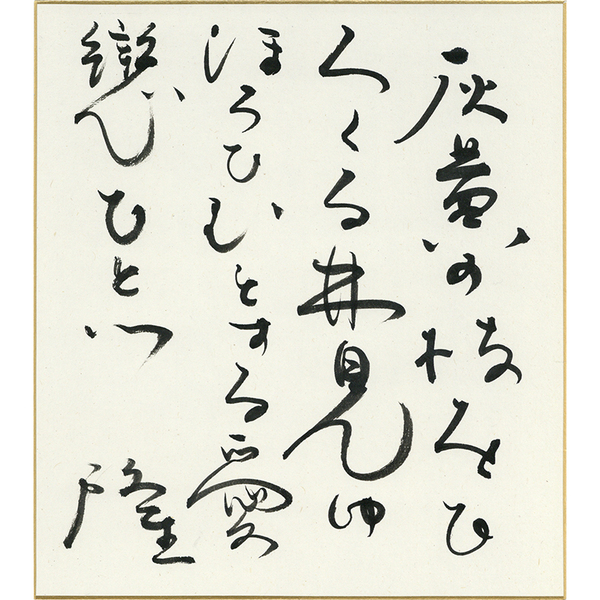 灰黄の枝をひ
ろくる林見ゆ
ほろひむとする愛
戀ひとつ
隆